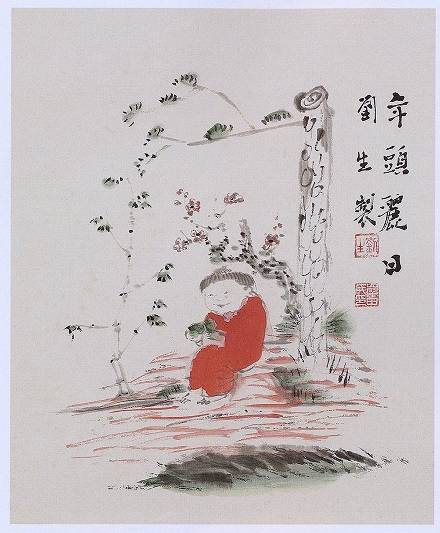 年頭麗日
劉生製